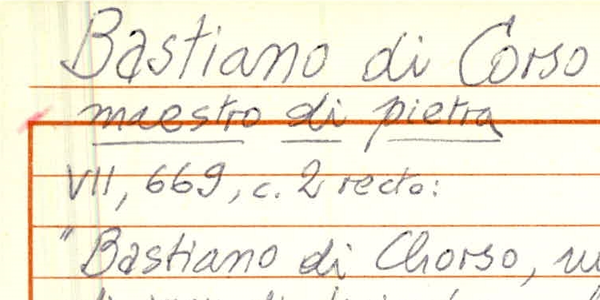 Bastiano di Corso
maestro di pietra
VII, 669, c. 2 recto:
"Bastiano di Chorso,